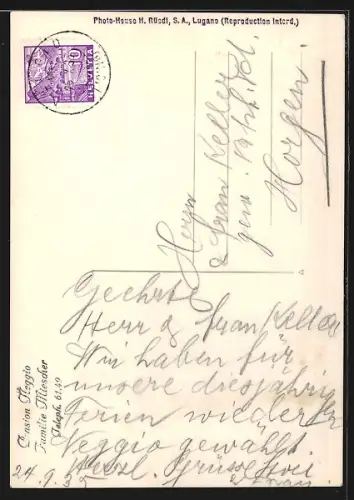 Photo-House H. Rüedi, S. A., Lugano (Reproduction interd.)
HELVETIA
10
Herrn
& Frau Keller
Horgen.
Pension Veggio
Familie Miescher
Teleph. 61.49
Geehrte
Herr & Frau Keller
Wir haben für
unsere diesjährig
Ferien wieder
Veggio gewählt
Herzl. Grüsse
24. 9.